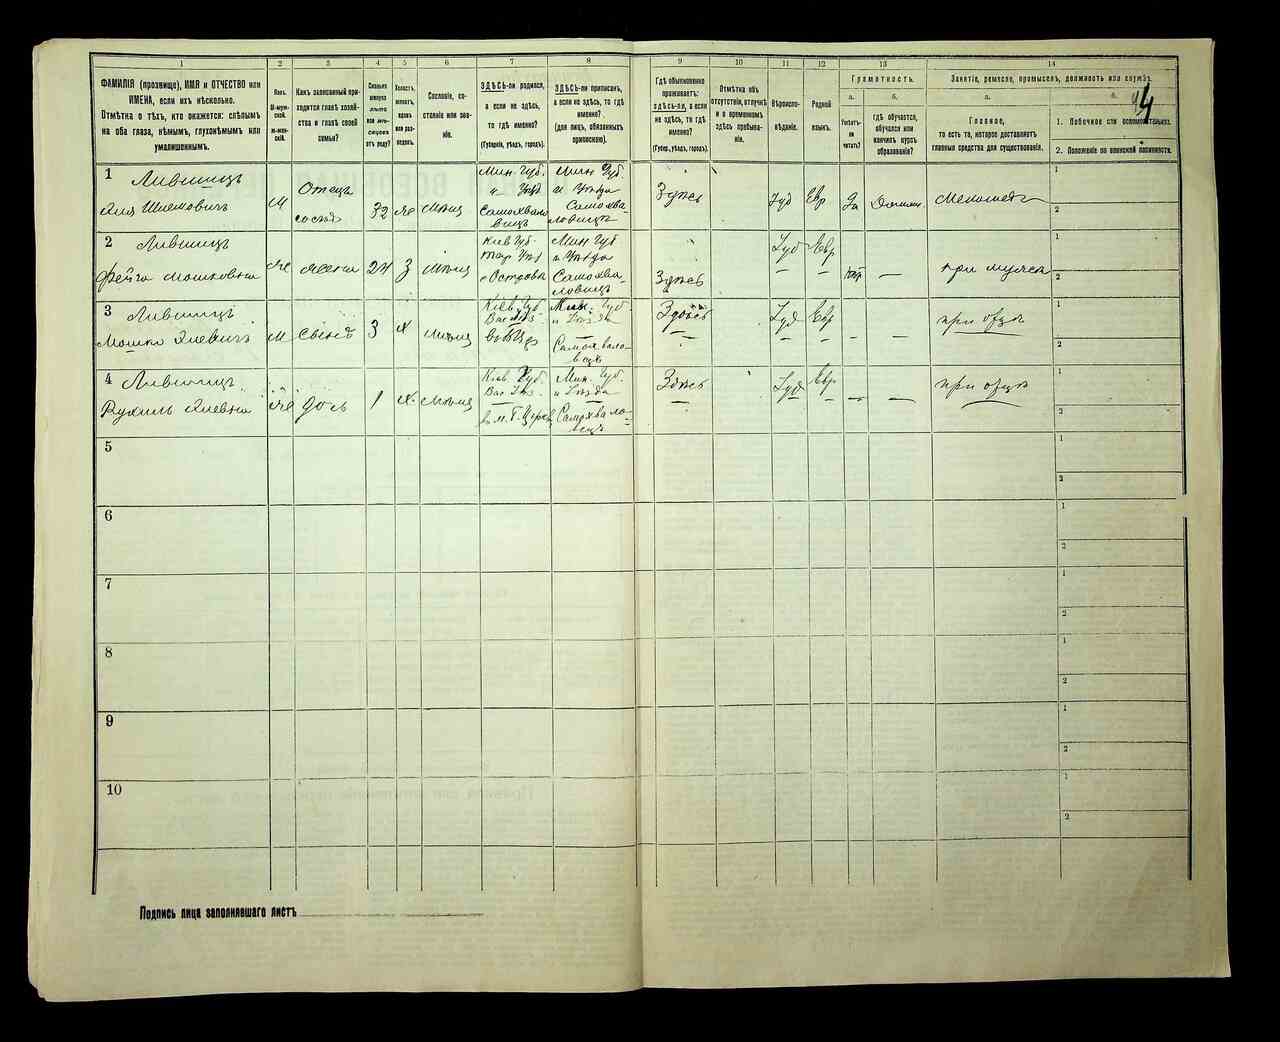 1 2 3 4 5 6 7 8 9 10 11 12 13 14
ФАМИЛІЯ (прозвище), ИМЯ и ОТЧЕСТВО или
ИМЕНА, если ихъ нѣсколько.
Отмѣтка о тѣхъ, кто окажется: слѣпымъ
на оба глаза, нѣмымъ, глухонѣмымъ или
умалишеннымъ.
Полъ.
М-муж-
ской.
Ж-жен-
скій.
Какъ записанный при-
ходится главѣ хозяй-
ства и главѣ своей
семьи?
Сколько
минуло
лѣтъ
или мѣ-
сяцевъ
отъ роду?
Холостъ,
женатъ,
вдовъ
или раз-
веденъ.
Сословіе, со-
стояніе или зва-
ніе.
ЗДѢСЬ-ли родился,
а если не здѣсь,
то гдѣ именно?
(Губернія, уѣздъ, городъ).
ЗДѢСЬ-ли приписанъ,
а если не здѣсь, то гдѣ
именно?
(для лицъ, обязанныхъ
припискою).
Гдѣ обыкновенно
проживаетъ:
ЗДѢСЬ-ли, а если
не здѣсь, то гдѣ
именно?
(Губер., уѣздъ, городъ).
Отмѣтка объ
отсутствіи, отлучкѣ
и о временномъ
здѣсь пребыва-
ніи.
Вѣроиспо-
вѣданіе.
Родной
языкъ.
Грамотность.
а.
Умѣетъ-
ли
читать?
б.
Гдѣ обучается,
обучался или
кончилъ курсъ
образованія?
Занятіе, ремесло, промыселъ, должность или служба.
а.
Главное,
то есть то, которое доставляетъ
главныя средства для существованія.
б.
1. Побочное или вспомогательное.
2. Положеніе по воинской повинности.
4
1
Лившицъ
Шлемовичъ
М
Отецъ
32
Мин. Губ.
и Уѣзда
Мин. Губ.
и Уѣзда
Самохва-
ловицъ
Здѣсь
Іуд
Евр
Да
1
2
2
Лившицъ
Фейга Мошковна
Же
Жена
24
Кіев Губ.
Мин Губ
и Уѣзда
Самохва-
ловицъ
Здѣсь
Іуд
Евр
—
при мужѣ
1
2
3
Лившицъ
Мошко Элевичъ
М
Сынъ
3
Х
Кіев. Губ.
Вас. Уѣз.
Мин. Губ.
и Уѣзда
Самохвало-
Здѣсь
Іуд
Евр
—
—
при отцѣ
1
2
4
Лившицъ
Рухиль Элевна
Же
дочь
1
Х
Кіев. Губ.
Вас. Уѣз.
Мин. Губ.
и Уѣзда
Самохвало-
Здѣсь
Іуд
Евр
—
—
при отцѣ
1
2
5
1
2
6
1
2
7
1
2
8
1
2
9
1
2
10
1
2
Подпись лица заполнявшаго листъ